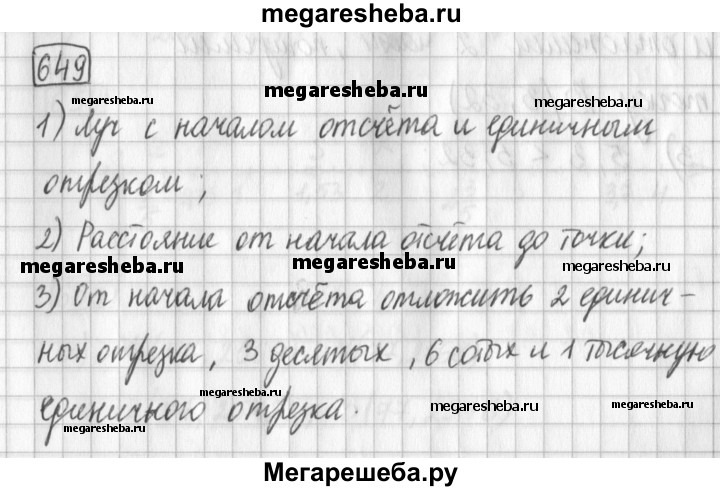 megaresheba.ru
649
megaresheba.ru
megaresheba.ru
megaresheba.ru
1) Луч с началом отсчёта и единичным
отрезком;
2) Расстояние от начала отсчёта до точки;
megaresheba.ru
megaresheba.ru
megaresheba.ru
3) От начала отсчёта отложить 2 единич-
ных отрезка, 3 десятых, 6 сотых и 1 тысячную
megaresheba.ru
единичного отрезка.
megaresheba.ru
megaresheba.ru
megaresheba.ru
Мегарешеба.ру